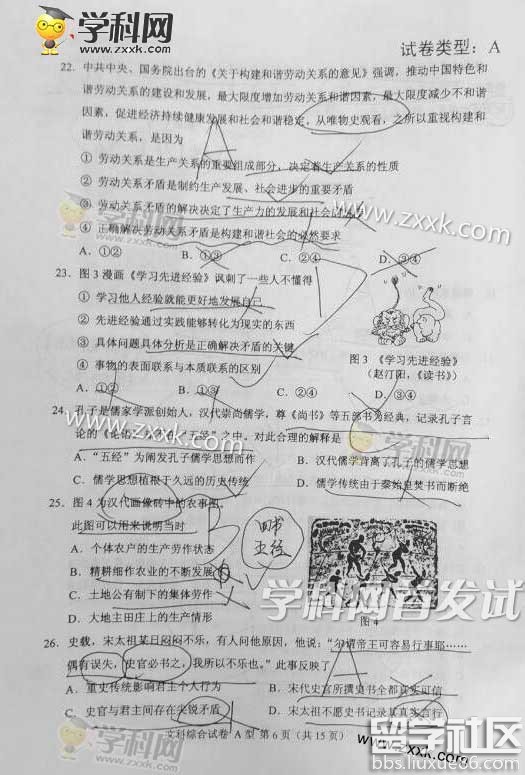 学科网
www.zxxk.com
试卷类型：A
22. 中共中央、国务院出台的《关于构建和谐劳动关系的意见》强调，推动中国特色和
谐劳动关系的建设和发展，最大限度增加劳动关系和谐因素，最大限度减少不和谐
因素，促进经济持续健康发展和社会和谐稳定。从唯物史观看，之所以重视构建和
谐劳动关系，是因为
① 劳动关系是生产关系的重要组成部分，决定着生产关系的性质
② 劳动关系矛盾是制约生产发展、社会进步的重要矛盾
③ 劳动关系矛盾的解决决定了生产力的发展和社会的
④ 正确解决劳动关系矛盾是构建和谐社会的必然要求
A. ①② B. ①③ C. ②④ D. ③④
学科网
www.zxxk.com
www.zxxk.com
23. 图 3 漫画《学习先进经验》讽刺了一些人不懂得
① 学习他人经验就能更好地发展自己
② 先进经验通过实践能够转化为现实的东西
③ 具体问题具体分析是正确解决矛盾的关键
④ 事物的表面联系与本质联系的区别
A. ①② B. ①③ C. ②④ D. ③④
图 3 《学习先进经验》
（赵汀阳，《读书》）
24. 孔子是儒家学派创始人，汉代崇尚儒学，尊《尚书》等五部书为经典，记录孔子言
论的《论语》却不在“五经”之中。对此合理的解释是
A. “五经”为阐发孔子儒学思想而作 B. 汉代儒学背离了孔子的儒学思想
C. 儒学思想植根于久远的历史传统 D. 儒学传统由于秦始皇焚书而断绝
www.zxxk.com
学科网
25. 图 4 为汉代画像砖中的农事图。
此图可以用来说明当时
A. 个体农户的生产劳作状态
B. 精耕细作农业的不断发展
C. 土地公有制下的集体劳作
D. 大地主田庄上的生产情形
四书
五经
图 4
学科网首发试
26. 史载，宋太祖某日闷闷不乐，有人问他原因，他说：“尔谓帝王可容易行事耶……
偶有误失，史官必书之，我所以不乐也。”此事反映了
A. 重史传统影响君主个人行为 B. 宋代史官所撰史书全都真实可信
C. 史官与君主间存在尖锐矛盾 D. 宋太祖不愿史书记录其真实言行
文科综合试卷 A 型 第 6 页（共 15 页）
学科网
www.zxxk.com
留学网
bbs.liuxue86.com